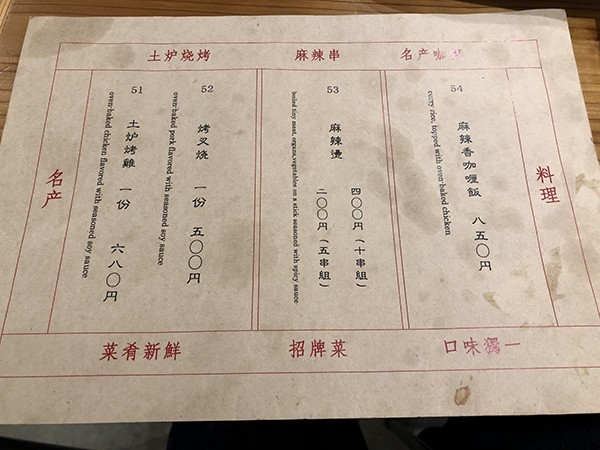 土炉烧烤
麻辣串
名产
名产
51
土炉烤雞 一份 六八〇円
oven-baked chicken flavored with seasoned soy sauce
52
烤叉燒 一份 五〇〇円
oven-baked pork flavored with seasoned soy sauce
53
麻辣燙
四〇〇円（十串組）
二〇〇円（五串組）
boiled tiny meat, organs,vegetables on a stick seasoned with spicy sauce
54
麻辣香咖喱飯 八五〇円
curry rice, topped with oven-baked chicken
料理
菜肴新鮮
招牌菜
口味獨一